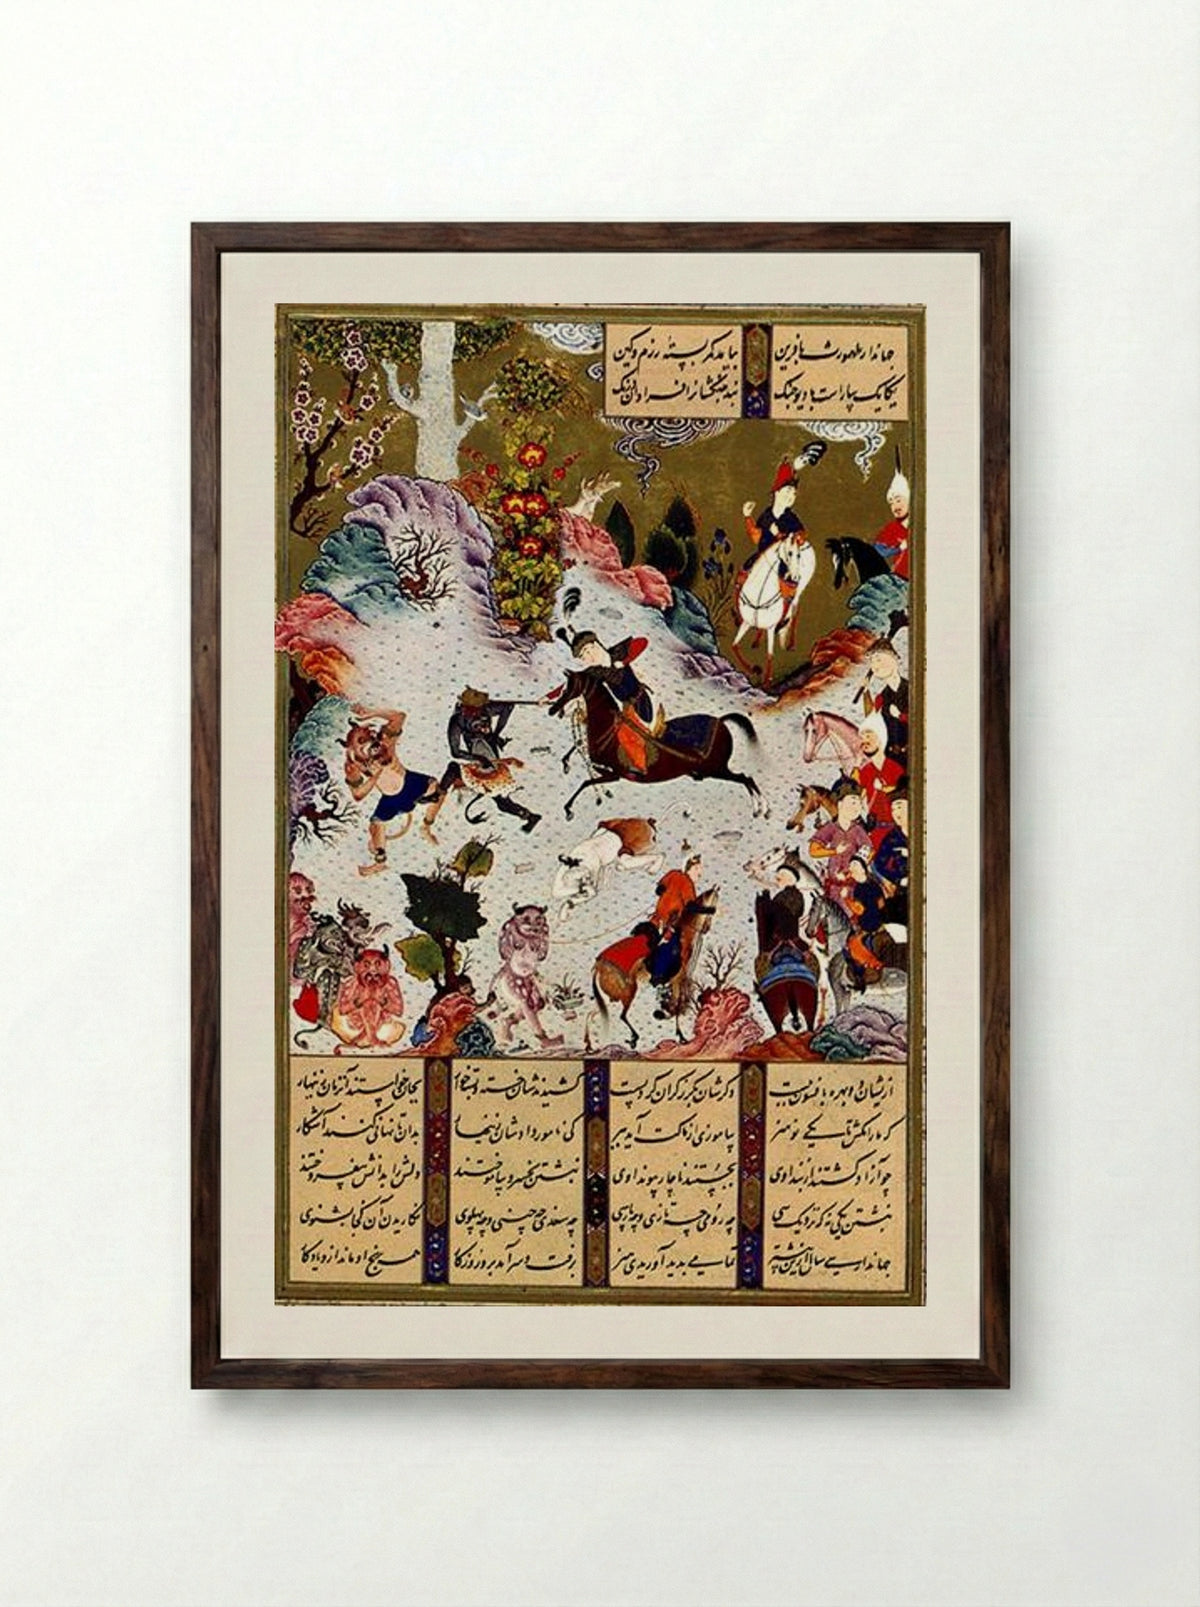 جهاندار طهمورث بافرین بیامد کمربسته رزم و کین
یکایک بیاراست با دیو جنگ نبد جنگشانرا فراوان درنگ
ازیشان دو بهره بافسون ببست دگرشان بگرز گران کرد پست کشیدندشان خسته و بسته خوار بجان خواستند آنزمان زینهار
که ما را مکش تا یکی نو هنر بیاموزی از ما کت آید ببر کی نامور دادشان زینهار بدان تا نهانی کنند آشکار
چو آزاد گشتند از بند اوی بجستند ناچار پیوند اوی نبشتن بخسرو بیاموختند دلش را بدانش
نبشتن یکی نه که نزدیک سی چه رومی چه تازی و چه پارسی چه سغدی چه چینی و چه پهلوی نگاریدن آن کجا بشنوی
جهاندار سی سال ازین بیشتر پدید آوریدی هنر برفت و سرآمد برو روزگار همه رنج او ماند ازو یادگار